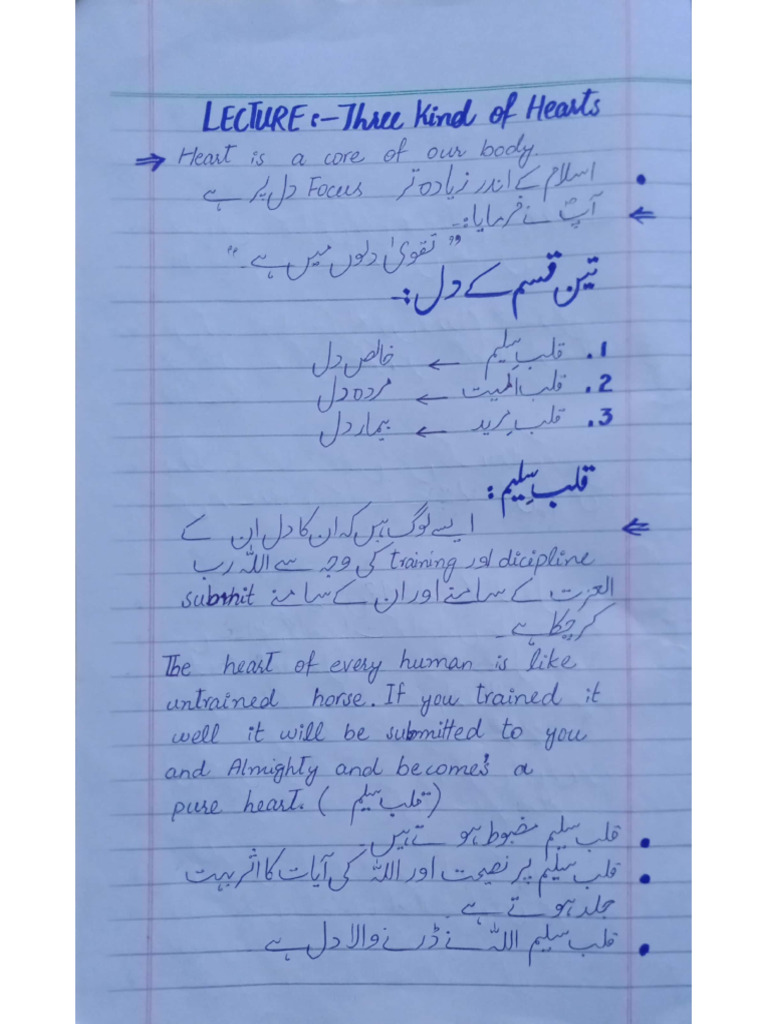 LECTURE :- Three Kind of Hearts
⇒ Heart is a core of our body.
• اسلام کے اندر زیادہ تر Focus دل پر ہے
⇐ آپؐ نے فرمایا:-
"تقویٰ دلوں میں ہے۔"
تین قسم کے دل:-
1. قلبِ سلیم ← خالص دل
2. قلب المیت ← مردہ دل
3. قلبِ مرید ← بیمار دل
قلبِ سلیم:
⇐ ایسے لوگ ہیں کہ ان کا دل ان کے
training اور dicipline کی وجہ سے اللہ رب
العزت کے سامنے اور ان کے سامنے submit
کر چکا ہے۔
The heart of every human is like
untrained horse. If you trained it
well it will be submitted to you
and Almighty and becomes a
pure heart. (قلب سلیم)
• قلب سلیم مضبوط ہوتے ہیں۔
• قلب سلیم پر نصیحت اور اللہ کی آیات کا اثر بہت
جلد ہوتے ہے۔
• قلب سلیم اللہ نے ڈرنے والا دل ہے